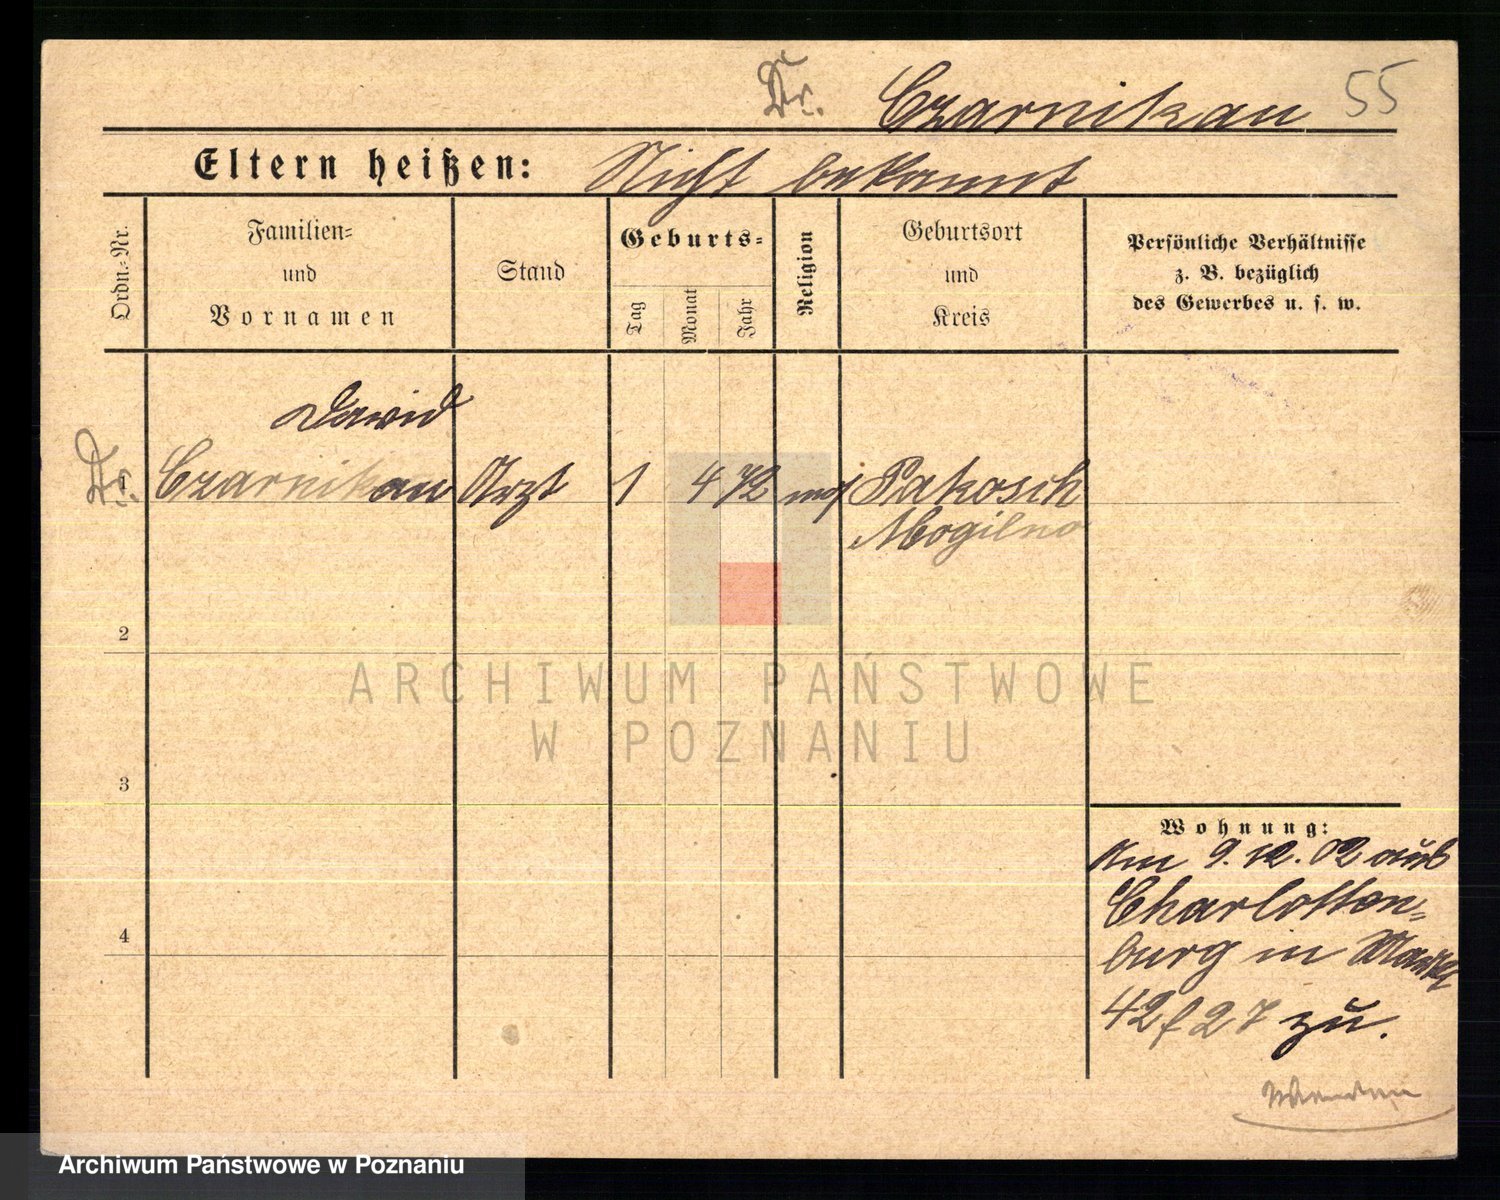 Dr. Czarnikau 55
Eltern heißen: Nicht bekannt
Ordn.-Nr.
Familien-
und
Vornamen
Stand
Geburts-
Tag
Monat
Jahr
Religion
Geburtsort
und
Kreis
Persönliche Verhältnisse
z. B. bezüglich
des Gewerbes u. s. w.
Dawid
Dr. 1 Czarnikau Arzt 1 4 72 mos Pakosch
Mogilno
2
3
4
ARCHIWUM PAŃSTWOWE
W POZNANIU
Wohnung:
Am 9.12.02 aus
Charlotten-
burg in
42 f 27 zu.
Archiwum Państwowe w Poznaniu